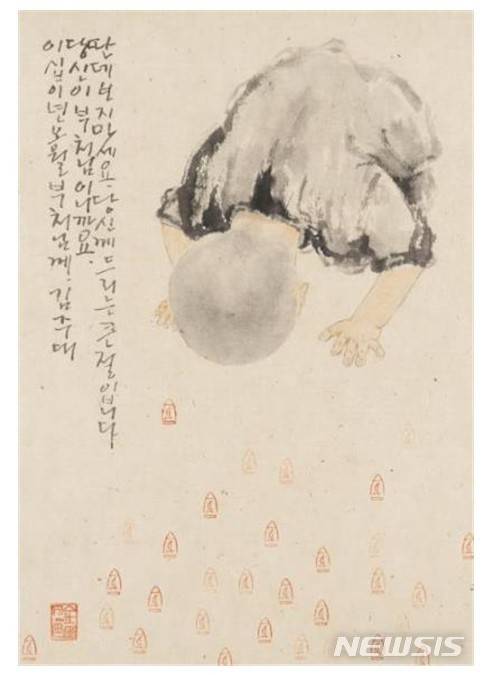 딴데 보지 마세요. 당신께 드리는 큰절입니다
당신이 부처님이니까요.
이십이년 오월 부처님께. 김주대
NEWSIS